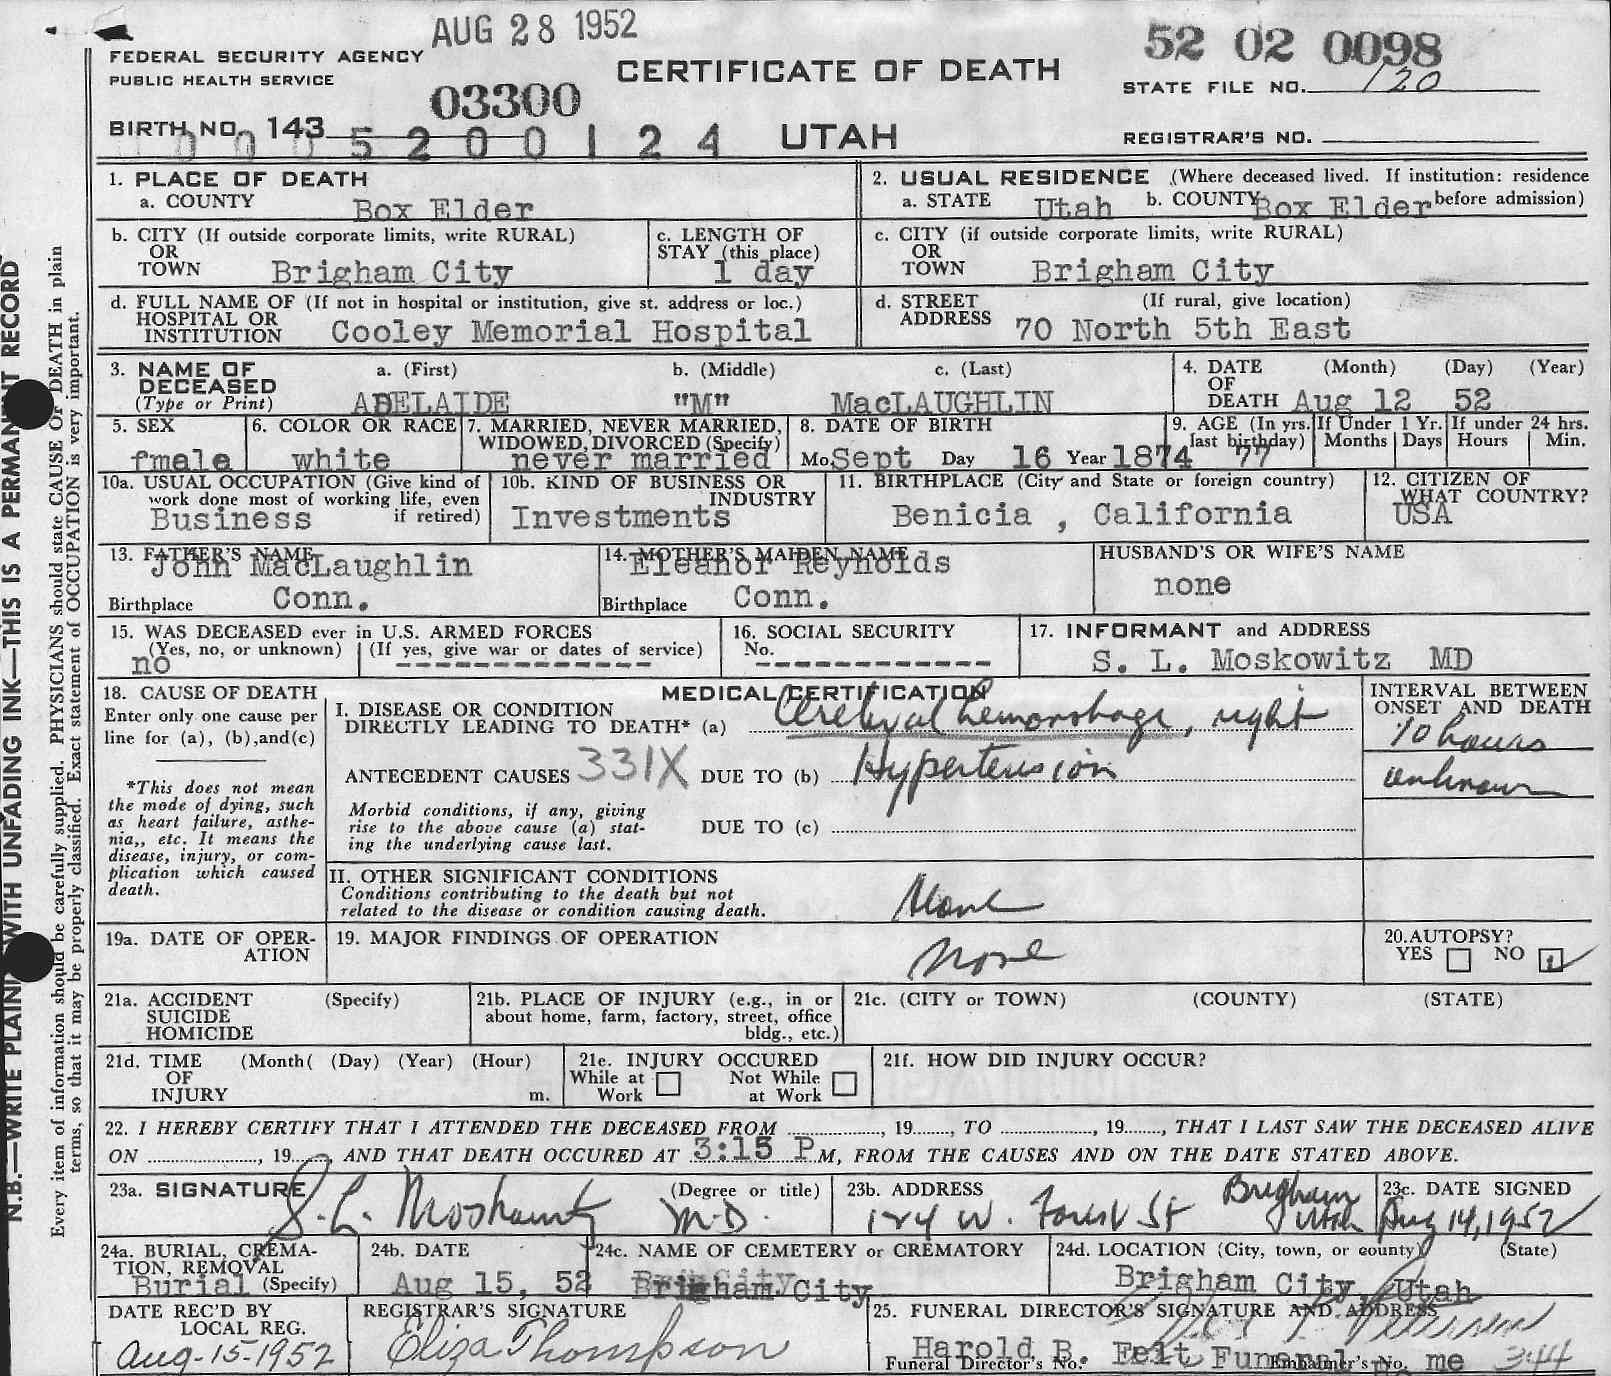 AUG 28 1952
52 02 0098
FEDERAL SECURITY AGENCY
PUBLIC HEALTH SERVICE
CERTIFICATE OF DEATH
STATE FILE NO. 120
03300
BIRTH NO. 143
0005200124
UTAH
REGISTRAR'S NO.
1. PLACE OF DEATH
a. COUNTY Box Elder
2. USUAL RESIDENCE (Where deceased lived. If institution: residence before admission)
a. STATE Utah b. COUNTY Box Elder
b. CITY (If outside corporate limits, write RURAL)
OR
TOWN Brigham City
c. LENGTH OF
STAY (this place)
1 day
c. CITY (if outside corporate limits, write RURAL)
OR
TOWN Brigham City
d. FULL NAME OF (If not in hospital or institution, give st. address or loc.)
HOSPITAL OR
INSTITUTION Cooley Memorial Hospital
d. STREET (If rural, give location)
ADDRESS 70 North 5th East
3. NAME OF
DECEASED
(Type or Print)
a. (First) b. (Middle) c. (Last)
ADELAIDE "M" MacLAUGHLIN
4. DATE (Month) (Day) (Year)
OF
DEATH Aug 12 52
5. SEX
fmale
6. COLOR OR RACE
white
7. MARRIED, NEVER MARRIED,
WIDOWED, DIVORCED (Specify)
never married
8. DATE OF BIRTH
Mo. Sept Day 16 Year 1874
9. AGE (In yrs. last birthday)
77
If Under 1 Yr.
Months Days
If under 24 hrs.
Hours Min.
10a. USUAL OCCUPATION (Give kind of
work done most of working life, even
if retired)
Business
10b. KIND OF BUSINESS OR
INDUSTRY
Investments
11. BIRTHPLACE (City and State or foreign country)
Benicia , California
12. CITIZEN OF
WHAT COUNTRY?
USA
13. FATHER'S NAME
John MacLaughlin
Birthplace Conn.
14. MOTHER'S MAIDEN NAME
Eleanor Reynolds
Birthplace Conn.
HUSBAND'S OR WIFE'S NAME
none
15. WAS DECEASED ever in U.S. ARMED FORCES
(Yes, no, or unknown) (If yes, give war or dates of service)
no -------------
16. SOCIAL SECURITY
No. ------------
17. INFORMANT and ADDRESS
S. L. Moskowitz MD
18. CAUSE OF DEATH
Enter only one cause per
line for (a), (b),and(c)
*This does not mean
the mode of dying, such
as heart failure, asthe-
nia,, etc. It means the
disease, injury, or com-
plication which caused
death.
MEDICAL CERTIFICATION
I. DISEASE OR CONDITION
DIRECTLY LEADING TO DEATH* (a) Cerebral hemorrhage, right
ANTECEDENT CAUSES 331X DUE TO (b) Hypertension
Morbid conditions, if any, giving
rise to the above cause (a) stat-
ing the underlying cause last.
DUE TO (c)
INTERVAL BETWEEN
ONSET AND DEATH
10 hours
unknown
II. OTHER SIGNIFICANT CONDITIONS
Conditions contributing to the death but not
related to the disease or condition causing death.
None
19a. DATE OF OPER-
ATION
19. MAJOR FINDINGS OF OPERATION
None
20. AUTOPSY?
YES NO
21a. ACCIDENT (Specify)
SUICIDE
HOMICIDE
21b. PLACE OF INJURY (e.g., in or
about home, farm, factory, street, office
bldg., etc.)
21c. (CITY or TOWN) (COUNTY) (STATE)
21d. TIME (Month( (Day) (Year) (Hour)
OF
INJURY m.
21e. INJURY OCCURED
While at Work Not While at Work
21f. HOW DID INJURY OCCUR?
22. I HEREBY CERTIFY THAT I ATTENDED THE DECEASED FROM , 19 , TO , 19 , THAT I LAST SAW THE DECEASED ALIVE
ON , 19 AND THAT DEATH OCCURED AT 3:15 P M, FROM THE CAUSES AND ON THE DATE STATED ABOVE.
23a. SIGNATURE (Degree or title)
S. L. Moskowitz M.D.
23b. ADDRESS
124 W. Forest St Brigham Utah
23c. DATE SIGNED
Aug 14, 1952
24a. BURIAL, CREMA-
TION, REMOVAL
Burial (Specify)
24b. DATE
Aug 15, 52
24c. NAME OF CEMETERY or CREMATORY
Brigham City
24d. LOCATION (City, town, or county) (State)
Brigham City, Utah
DATE REC'D BY
LOCAL REG.
Aug-15-1952
REGISTRAR'S SIGNATURE
Eliza Thompson
25. FUNERAL DIRECTOR'S SIGNATURE AND ADDRESS
Harold B. Felt Funeral
Funeral Director's No. Embalmer's No. me 344
N.B.—WRITE PLAINLY WITH UNFADING INK—THIS IS A PERMANENT RECORD
Every item of information should be carefully supplied. PHYSICIANS should state CAUSE OF DEATH in plain
terms, so that it may be properly classified. Exact statement of OCCUPATION is very important.